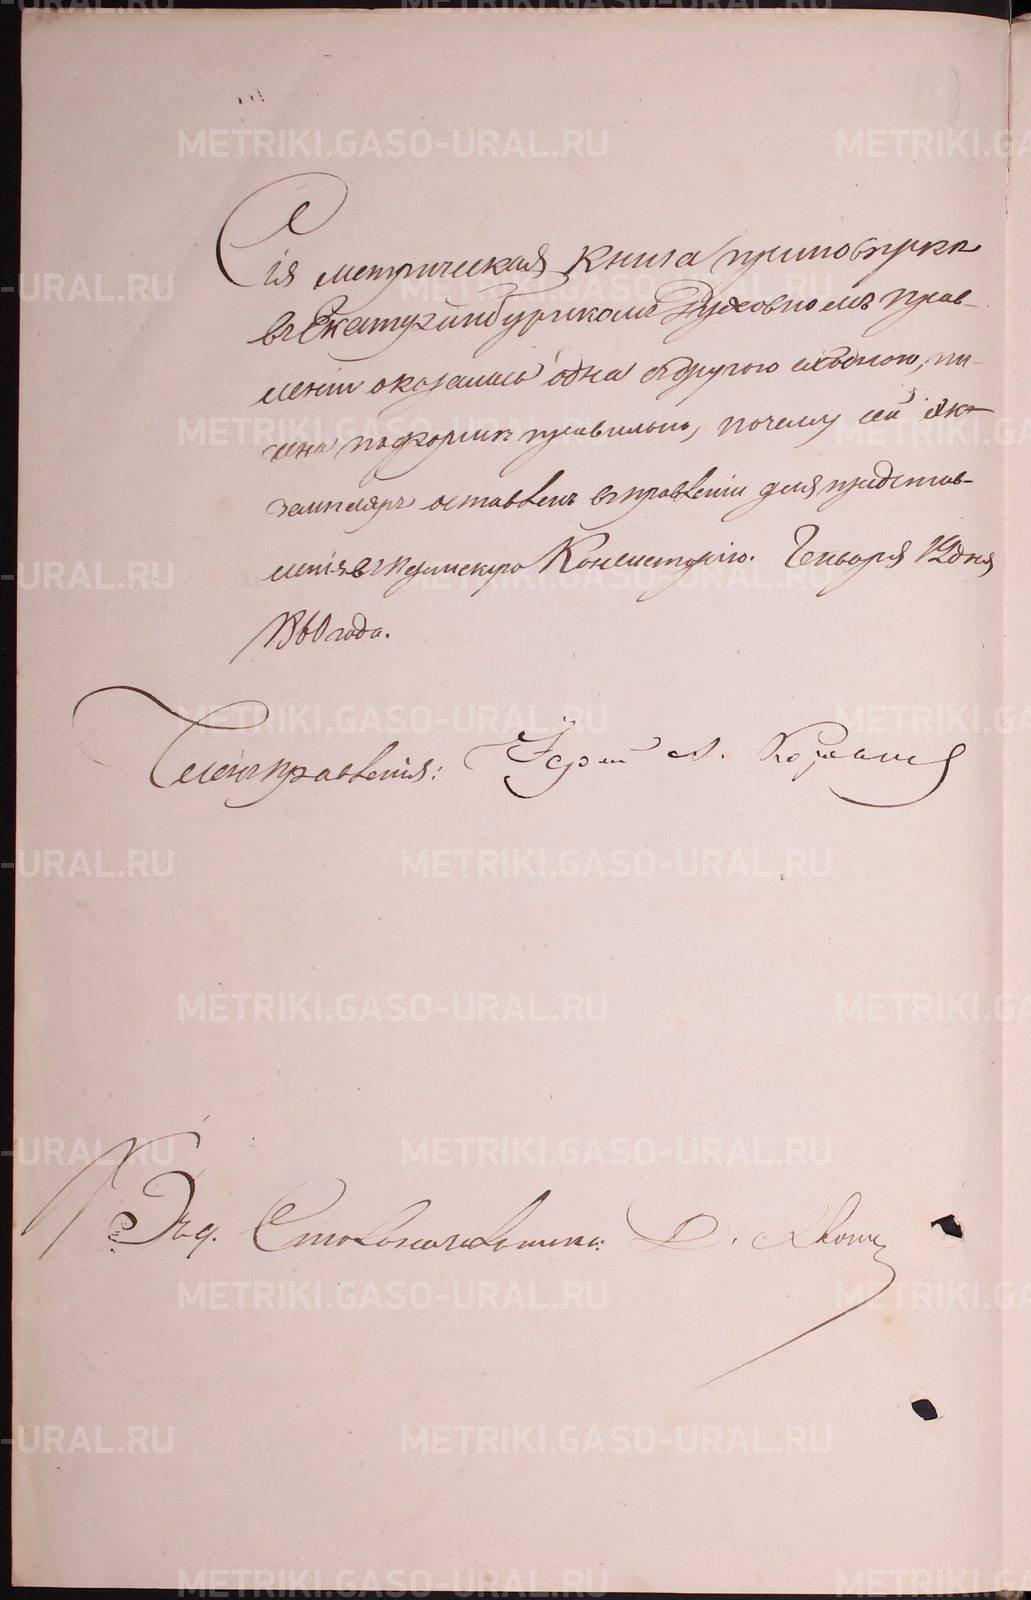 Сія метрическая книга при повѣрке
въ Екатеринбургскомъ Духовномъ прав-
леніи оказалась одна съ другою сходною, пи-
сана по форме правильно, почему сей эк-
земпляръ оставленъ въ правленіи для представ-
ленія въ Пермскую Консисторію. Генваря 19 дня
1860 года.
Членъ правленія: Іерей
Столоначальника: Д.
METRIKI.GASO-URAL.RU